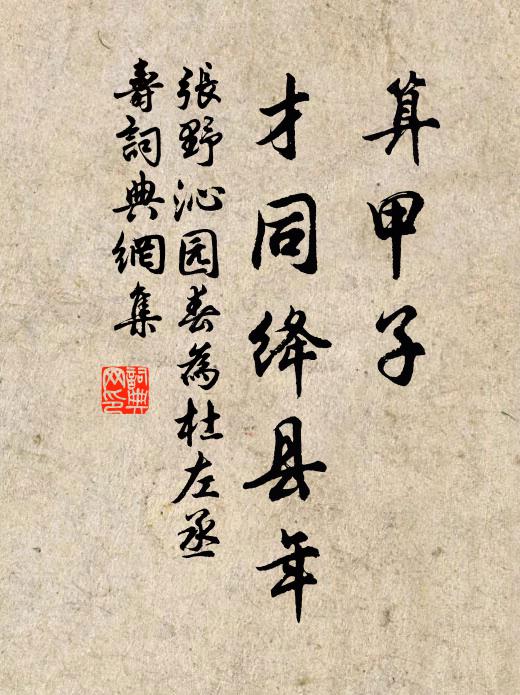 算甲子
才同绛县年
張野沁园春為杜左丞
壽詞典網集
詞典网印